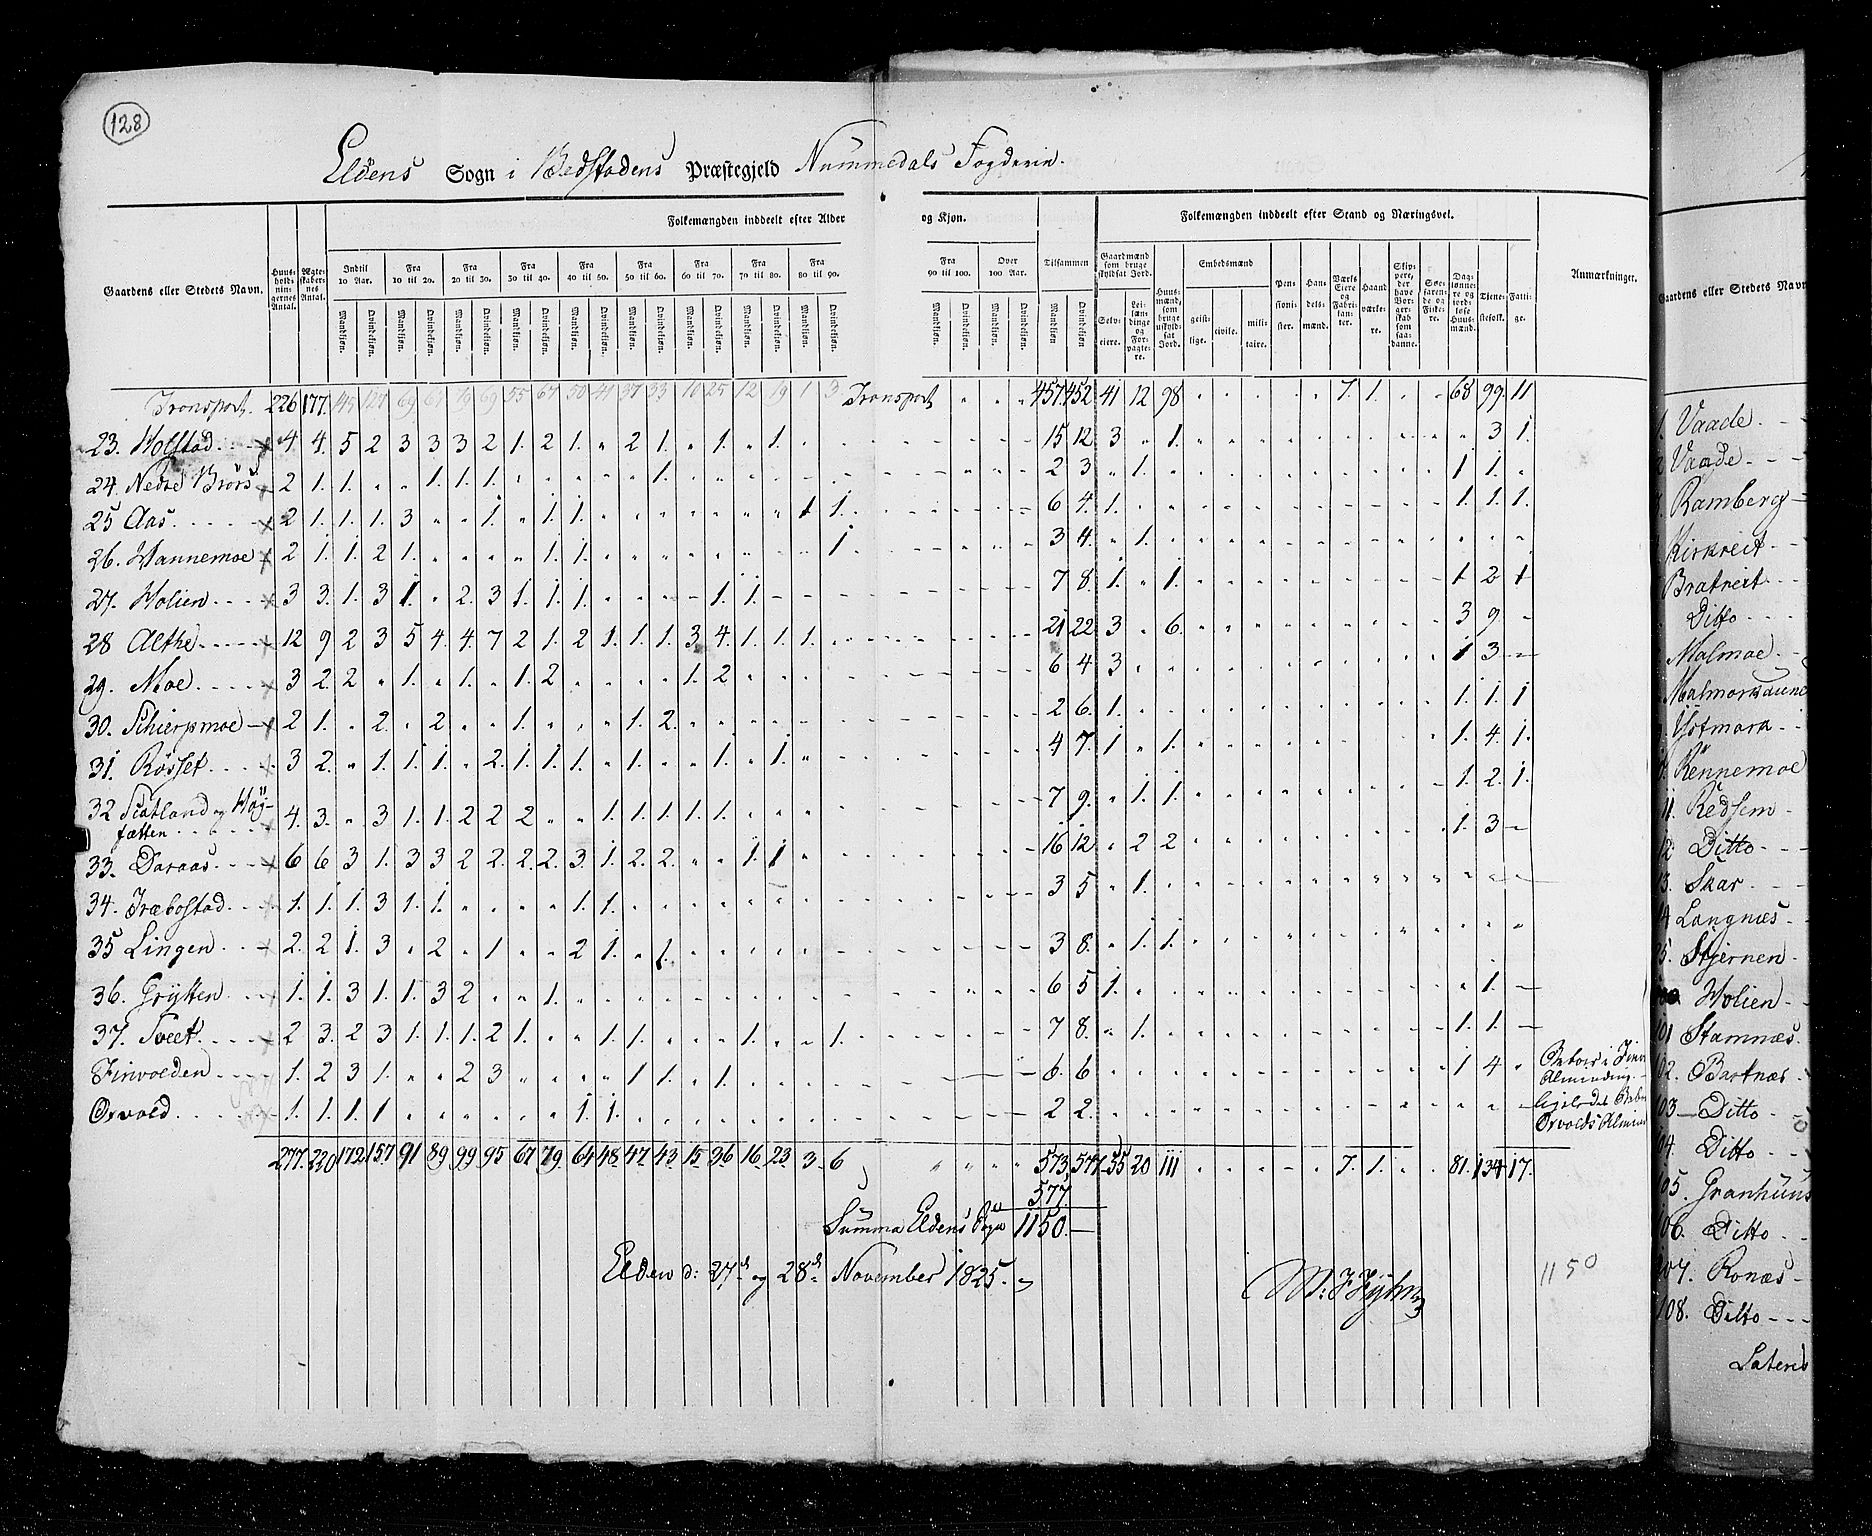 128
Eldens Sogn i Bedstadens Præstegjeld Nummedals Fogderie.
Gaardens eller Stedets Navn. Huusholdningernes Antal. Ægteskabernes Antal. Folkemængden inddeelt efter Alder og Kjøn. Tilsammen Folkemængden inddeelt efter Stand og Næringsvei. Anmærkninger.
Indtil 10 Aar. Fra 10 til 20. Fra 20 til 30. Fra 30 til 40. Fra 40 til 50. Fra 50 til 60. Fra 60 til 70. Fra 70 til 80. Fra 80 til 90. Fra 90 til 100. Over 100 Aar.
Gaardmænd som bruge skyldsat Jord. Huusmænd, som bruge uskyldsat Jord. Embedsmænd Pensionister. Handelsmænd. Værks Eiere og Fabrikanter. Haandværkere. Skippere, der have Borgerskab som saadanne. Søefarende og Fiskere. Daglønnere og jordløse Huusmænd. Tjenestefolk. Fattige.
Mandkjøn. Qvindekjøn. Selveiere. Leilændinge og Forpagtere. geistlige. civile. militaire.
Transport. 226 177. 145 127 69 67 79 69 55 67 50 41 37 33 10 25 12 19 1 3 Transport 457 452 41 12 98 7. 1. 68 99. 11
23. Holstad 4 4. 5 2 3 3 3 2 1. 2 1. 2 1. 1. 1. 15 12 3 1. 3 1.
24. Nedre Brørs 2 1. 1. 1. 1. 1. 1. 2 3 1. 1 1.
25 Aas 2 1. 1. 1. 3 1. 1. 1. 1 1. 6 4. 1. 1. 1. 1.
26. Wannemoe 2 1. 1. 2 1. 1. 1. 1 3 4. 1.
27. Holien 3 3. 1. 3 1. 2. 3 1. 1. 1. 1. 1. 7 8. 1. 1. 1 2 1
28 Althe 12 9 2 3 5 4. 4. 7 2 1. 2 1. 1. 1. 3 4. 1. 1. 1. 21 22 3 6. 3 9.
29. Moe 3 2. 2 1. 1. 1. 2 1. 2 6 4 3 1 3
30. Schierpmoe 2 1. 2. 2 1. 1. 2. 2 6. 1. 1. 1. 1
31. Røsset 3 2. 1. 1. 1. 2. 1. 1. 1. 1. 1. 1. 4 7. 1 1. 1. 4. 1.
32 Scatland og Høg-
fætten 4. 3. 3 1. 1. 2 2 2 1. 1. 1. 1. 1. 7 9. 1. 1. 1. 2. 1.
33. Daraas 6 6 3 1. 3 3 2 2. 2. 2. 3. 1. 2. 2. 1. 1 16 12. 2 2 1. 3
34. Træbostad 1. 1. 1. 3 1. 1. 1. 1. 3 5 1.
35 Lingen 2. 2 1. 3 2 1 2 1. 1. 3 8. 1. 1.
36. Grytten 1. 1. 3 1. 1. 3 2 1. 6 5 1. 1.
37. Tveet 2 3. 2 3 1. 1. 1. 2 1. 1. 1. 1. 1. 7 8. 1. 1. 1.
Finvolden 1. 2 3 1. 2 3 1 1. 1. 6. 6 1 4
Orvold 1. 1. 1. 1 1. 1. 2 2.
277. 220 172 157 91 89 99 95 67 79 64 48. 47. 43. 15. 36 16. 23 3. 6 573. 577 55 20 111 7. 1. 81. 134 17.
577.
Summa Eldens Sogn 1150.
Elden d: 27d og 28d November 1825.
1150
Gaardens eller Stedets Navn
Vaade
Vaade
Ramberg
Kirkreit
Bratreit
Ditto
Malmoe
Malmorsaune
Ustmark
Rennemoe
11. Redsem
12. Ditto
13. Skar
14 Langnæs
15. Stjernen
Holien
101 Stamnæs
102. Bartnæs
103 Ditto
104. Ditto
105. Granhuus
106. Ditto
107. Ronæs
108. Ditto
Lateris